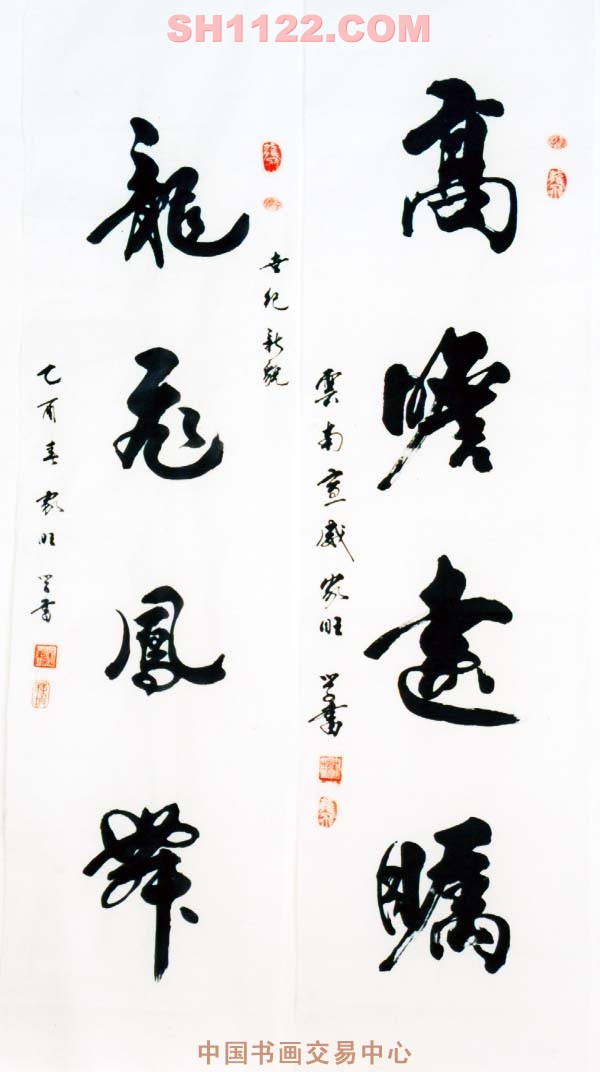 SH1122.COM
高瞻遠矚
雲南宣威家旺
學書
世纪新魂
龍飛鳳舞
乙酉春家旺學書
中国书画交易中心